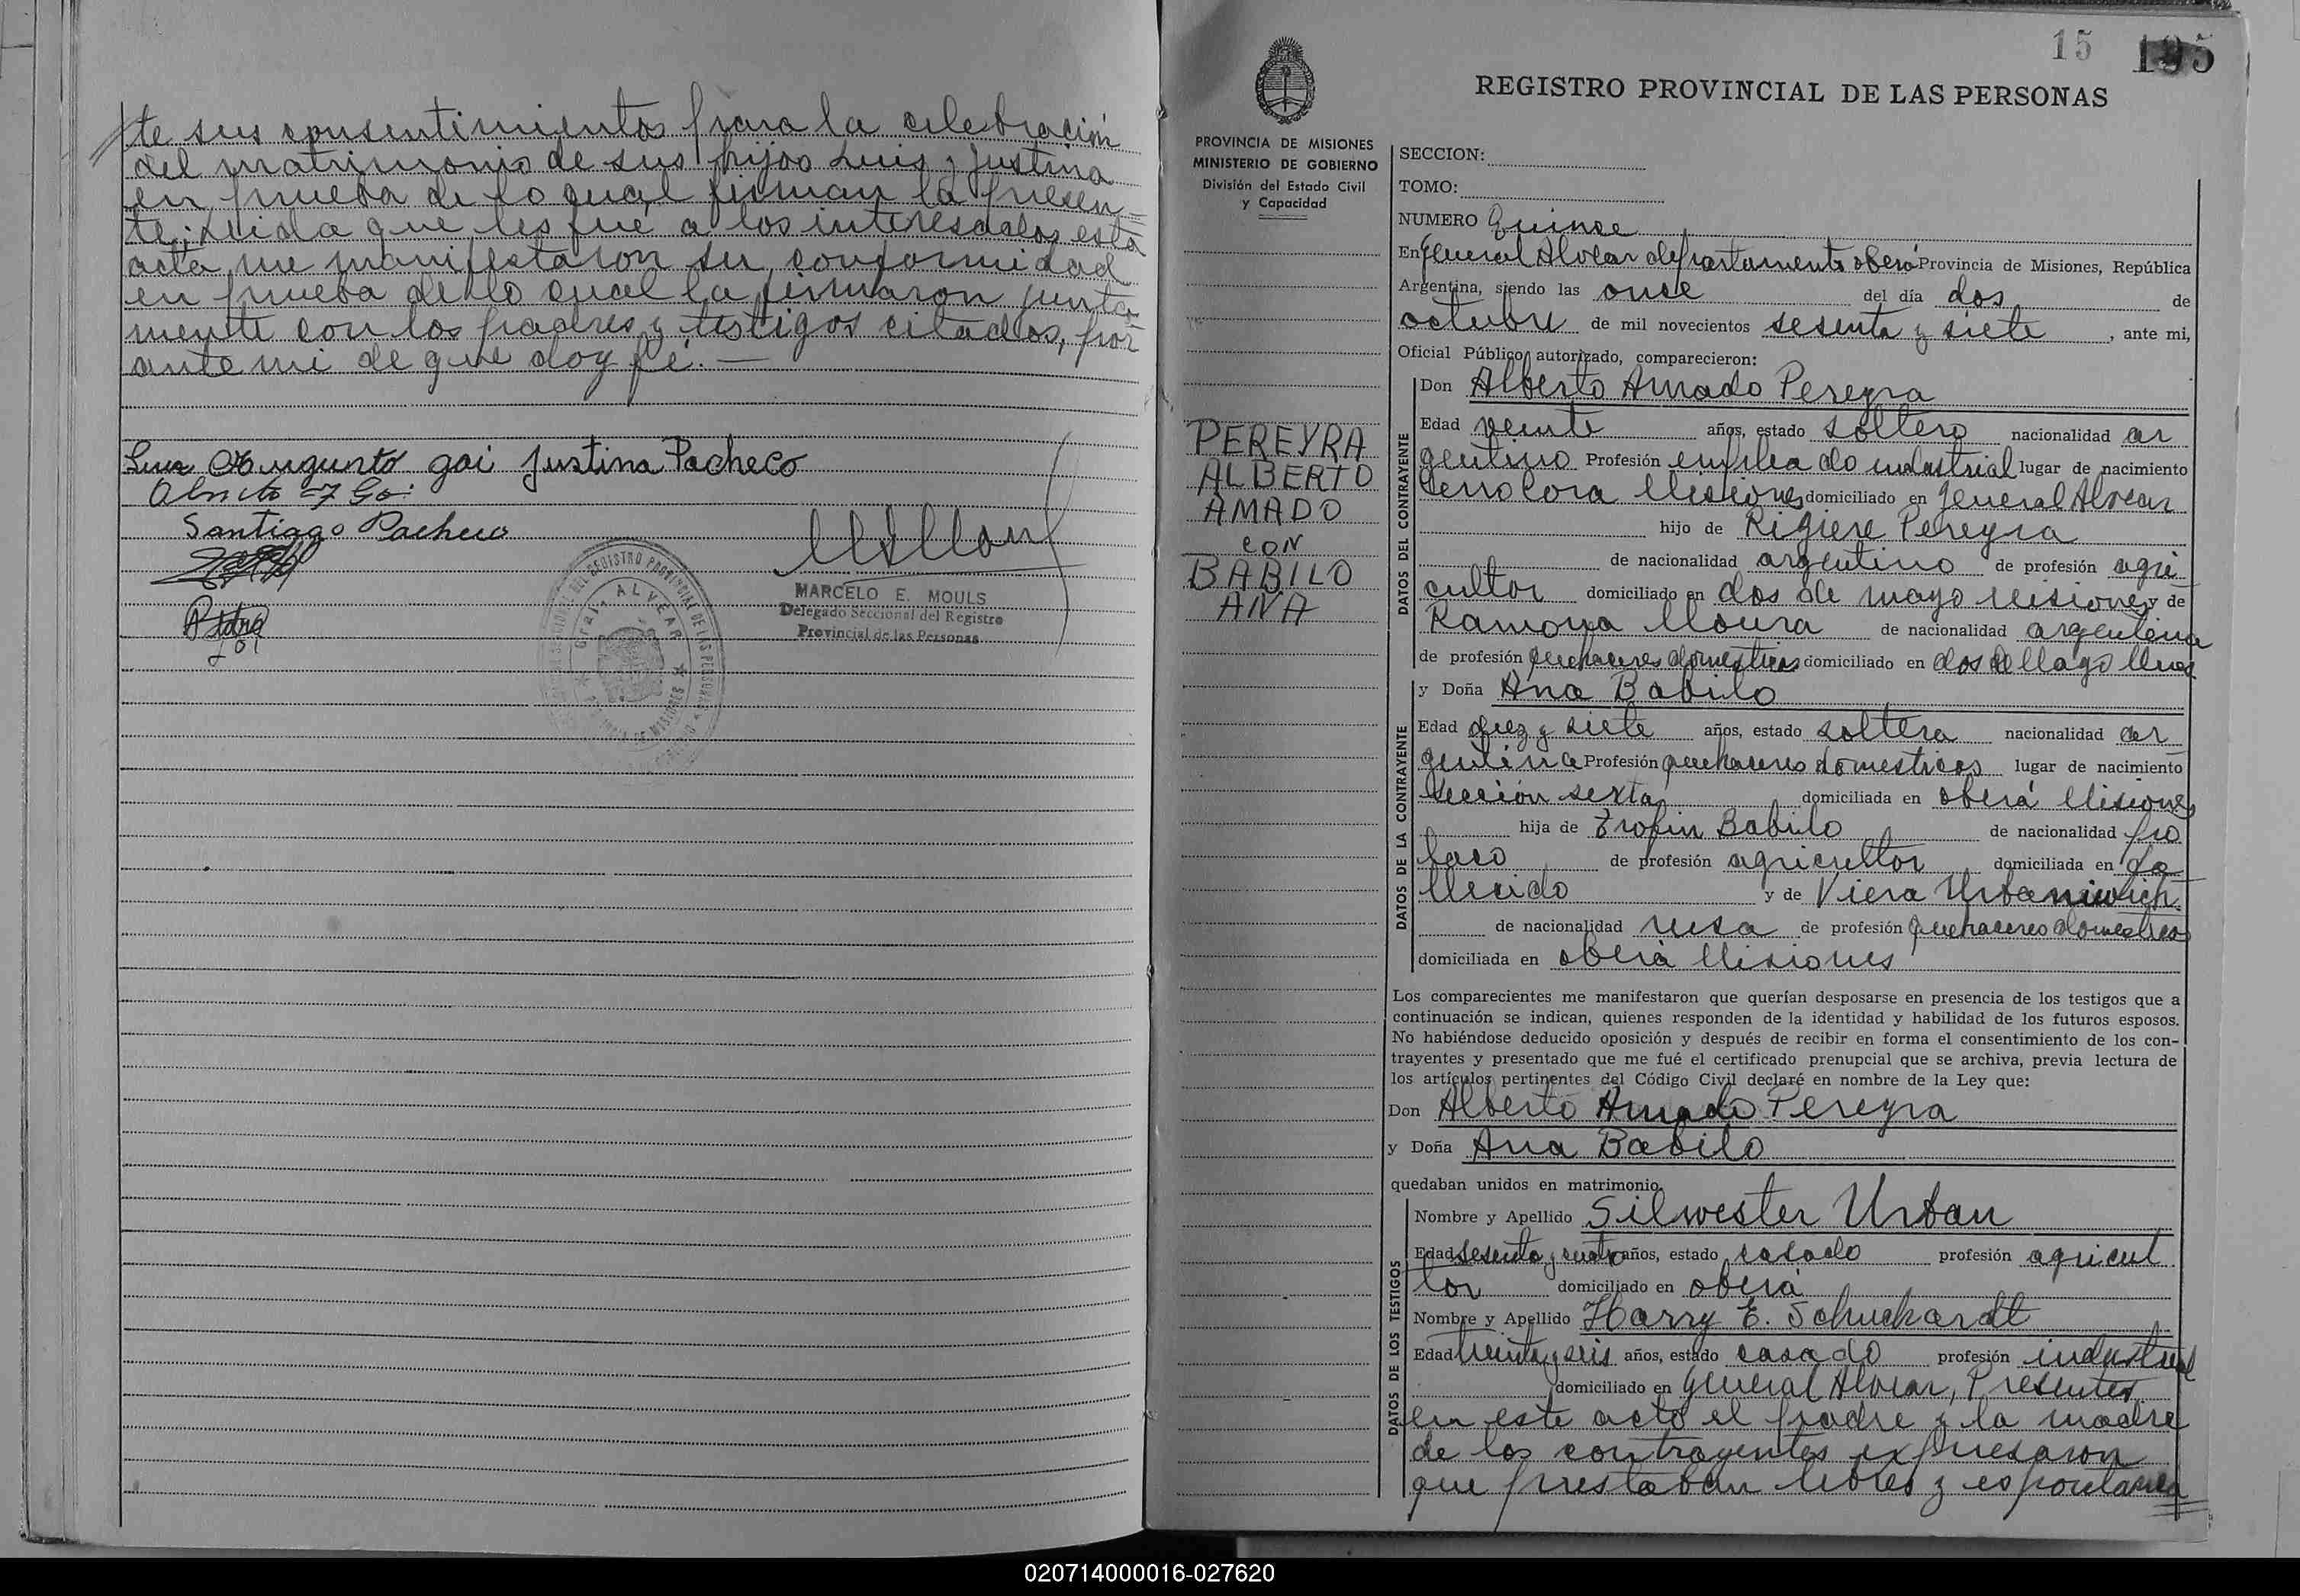 te sus consentimientos para la celebración
del matrimonio de sus hijos Luis y Justina
en prueba de lo cual firman la presen-
te; Leida que les fué a los interesados esta
acta, me manifestaron su conformidad
en prueba de lo cual la firmaron junta
mente con los padres y testigos citados, por
ante mi de que doy fé. —
Luis Augusto Goi Justina Pacheco
Santiago Pacheco
MARCELO E. MOULS
Delegado Seccional del Registro
Provincial de las Personas
Gral. ALVEAR
15 195
REGISTRO PROVINCIAL DE LAS PERSONAS
PROVINCIA DE MISIONES
MINISTERIO DE GOBIERNO
División del Estado Civil
y Capacidad
PEREYRA
ALBERTO
AMADO
CON
BABILO
ANA
SECCION:
TOMO:
NUMERO Quince
En General Alvear departamento oberá Provincia de Misiones, República
Argentina, siendo las once del día dos de
octubre de mil novecientos sesenta y siete, ante mi,
Oficial Público autorizado, comparecieron:
DATOS DEL CONTRAYENTE
Don Alberto Amado Pereyra
Edad veinte años, estado soltero nacionalidad ar
gentino Profesión empleado industrial lugar de nacimiento
Cerro Cora Misiones domiciliado en General Alvear
hijo de Rigiere Pereyra
de nacionalidad argentino de profesión agri
cultor domiciliado en dos de mayo Misiones y de
Ramona Moura de nacionalidad argentina
de profesión quehaceres domesticos domiciliado en dos de Mayo Mnes
DATOS DE LA CONTRAYENTE
y Doña Ana Babilo
Edad diez y siete años, estado soltera nacionalidad ar
gentina Profesión quehaceres domesticos lugar de nacimiento
Sección sexta domiciliada en oberá Misiones
hija de Trofin Babilo de nacionalidad po
laco de profesión agricultor domiciliada en fa
llecido y de Viera Urbaniwich
de nacionalidad rusa de profesión quehaceres domesticos
domiciliada en oberá Misiones
Los comparecientes me manifestaron que querían desposarse en presencia de los testigos que a
continuación se indican, quienes responden de la identidad y habilidad de los futuros esposos.
No habiéndose deducido oposición y después de recibir en forma el consentimiento de los con-
trayentes y presentado que me fué el certificado prenupcial que se archiva, previa lectura de
los artículos pertinentes del Código Civil declaré en nombre de la Ley que:
Don Alberto Amado Pereyra
y Doña Ana Babilo
quedaban unidos en matrimonio.
DATOS DE LOS TESTIGOS
Nombre y Apellido Silwester Urban
Edad sesenta y cuatro años, estado casado profesión agricul
tor domiciliado en oberá
Nombre y Apellido Harry E. Schuchardt
Edad treinta y seis años, estado casado profesión industrial
domiciliado en General Alvear, Presentes
en este acto el padre y la madre
de los contrayentes expresaron
que prestaban libres y espontanea
020714000016-027620